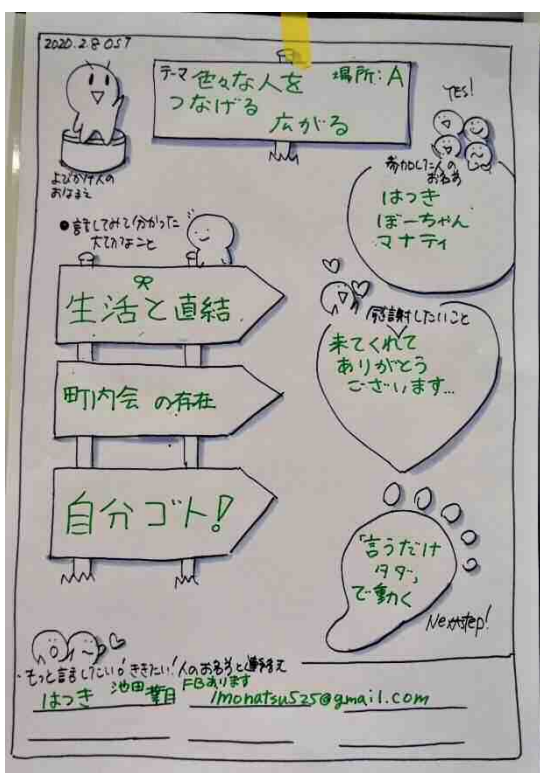 2020.2.8 OST
テーマ 色々な人を
つなげる
広がる
場所:A
よびかけ人の
おなまえ
YES!
参加した人の
お名前
はっき
ぼーちゃん
マナティ
●話してみて分かった
大切なこと
生活と直結
町内会の存在
自分ゴト!
感謝したいこと
来てくれて
ありがとう
ございます…
「言うだけ
タダ」
で動く
Next step!
もっと話したい!ききたい!人のお名前と連絡先
はっき 池田葉月 FBあります
imonatsu525@gmail.com